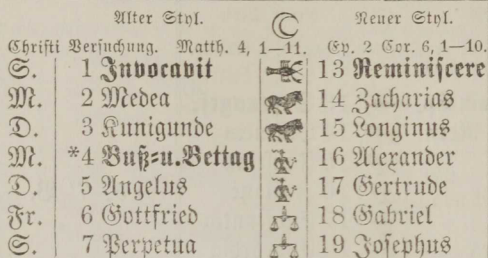 Alter Styl. Neuer Styl.
Christi Versuchung. Matth. 4, 1—11. Ep. 2 Cor. 6, 1—10.
S. 1 Invocavit 13 Reminiscere
M. 2 Medea 14 Zacharias
D. 3 Kunigunde 15 Longinus
M. *4 Buß=u.Bettag 16 Alexander
D. 5 Angelus 17 Gertrude
Fr. 6 Gottfried 18 Gabriel
S. 7 Perpetua 19 Josephus